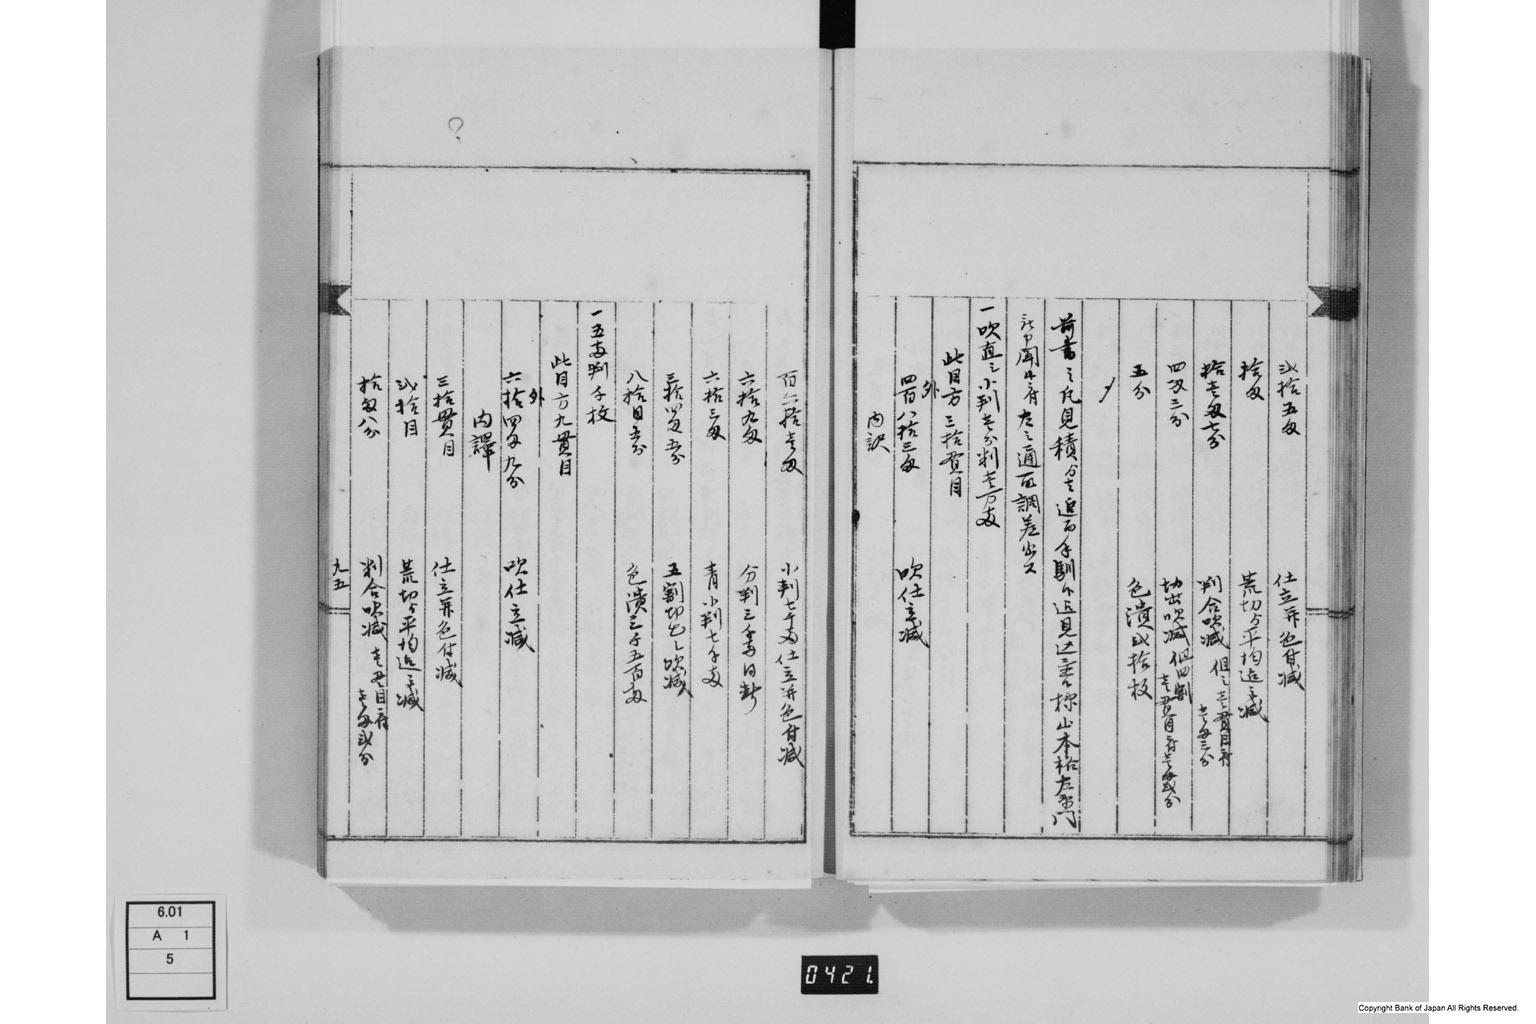 弐拾五匁　仕立并色付減
拾匁　荒切与平均造立減
拾壱匁七分　判合吹減　但シ壱貫目ニ付壱匁三分
四匁三分　切出吹減　但四割壱貫目ニ付壱匁弐分
五分　色潰弐拾枚
前書之凡見積
左之通 取調差出ス
一吹直シ小判壱分判壱万両
此目方三拾貫目
外
四百八拾三匁　吹仕立減
内訳
百六拾壱匁　小判七千両仕立并色付減
六拾九匁　分判三千両同断
六拾三匁　青小判七千両
三拾四匁五分　五割切出シ吹減
八拾目五分　色潰三千五百両
一五両判千枚
此目方九貫目
外
六拾四匁九分　吹仕立減
内譯
三拾貫目　仕立并色付減
弐拾目　荒切与平均造立減
拾匁八分　判合吹減　壱貫目ニ付壱匁弐分
九五
6.01
A 1
5
0421.
Copyright Bank of Japan All Rights Reserved.